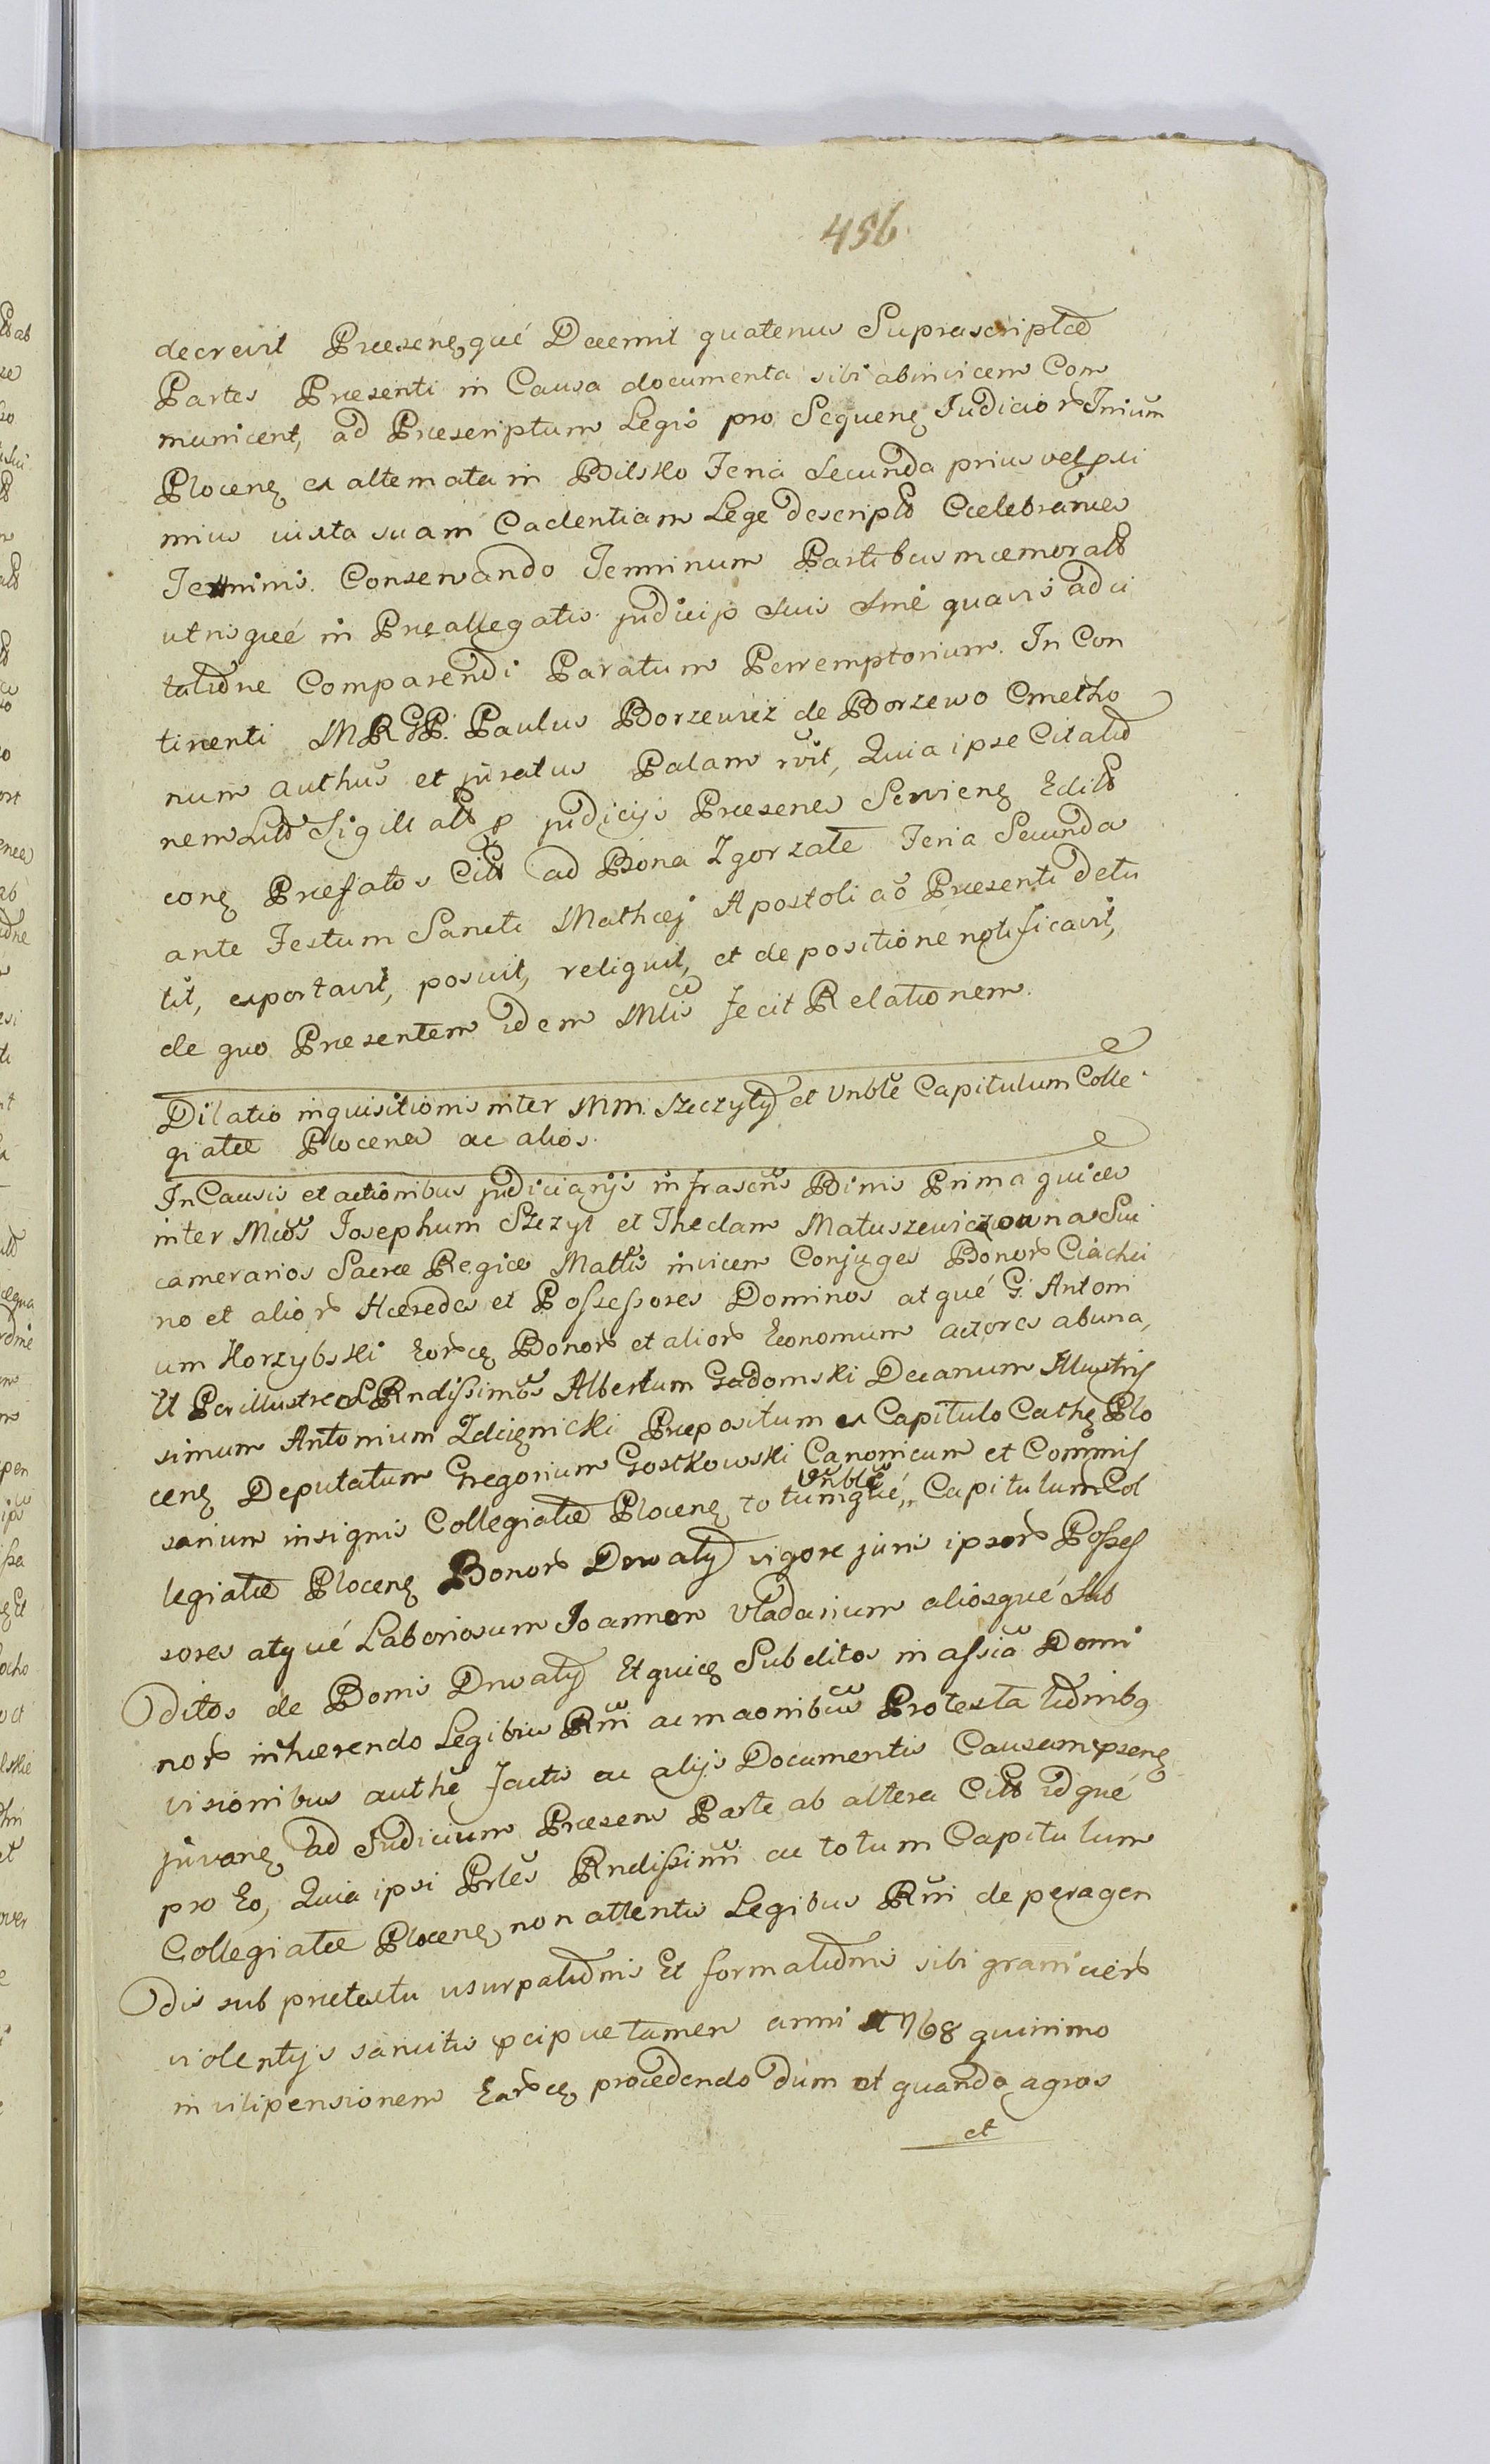 456
decrevit Præsenęqué Decernit quatenus Suprascriptæ
Partes Præsenti in Causa documenta sibi abinvicem Com
municent, ad Præscriptum Legis pro Sequenę Judicior Trium
Plocenę ex alternata in Bilsko Feria Secunda prius vel pxi
mius iuxta suam Cadentiam Lege descripto Cælebranes
Terminis. Conservando Terminum Partibus mæmoratt
utrisqué in Præallegatis judicijs suis Sine quavis adci
tatione Comparendi Paratum Perremptorium. In Con
tinenti MRGP. Paulus Borzewicz de Borzewo Cmetho
num authus et juratus Palam rvit, Quia ipse Citatio
nem Litt Sigillatt p judicijs Præsenes Servienę Editt
conę Præfatos Citt ad Bona Zgorzałe Feria Secunda
ante Festum Sancti Mathæj Apostoli ao Præsenti detu
lit, exportavit, posuit, reliquit, et de positione notificavit,
de quo Præsentem idem Mlis fecit Relationem.
Dilatio inquisitionis inter MM. Szczyty et Vnble Capitulum Colle
giatæ Plocenes ac alios.
In Causis et actionibus judiciarijs infrascris Binis Prima quides
inter Mcos Josephum Szczyt et Theclam Matuszewiczowna Sui
camerarios Sacræ Regiæ Mattis invicem Conjuges Bonor Ciachci
no et alior Hæredes et Possessores Dominos atqué G. Antoni
um Korzybski Eorcę Bonor et alior Economum actores abuna,
Et Perillustres Rndissimos Albertum Gadomski Decanum Illustris
simum Antonium Zdzięnicki Præpositum ex Capitulo Cathę Plo
cenę Deputatum Gregorium Gostkowski Canonicum et Commis
sarium insignis Collegiatæ Plocenę totumqué Vnble Capitulum Col
legiatæ Plocenę Bonor Drwały vigore juris ipsor Posses
sores atqué Laboriosum Joannem Vladarium aliosqué Sub
ditos de Bonis Drwały Et quicę Subditos in assia Domi
nor inhærendo Legibus Rni ac maonibus Protestationibg
visionibus authę factis ac alijs Documentis Causam psenę
juvanę ad Judicium Præsens Parte ab altera Citt idqué
pro Eo, Quia ipsi Prles Rndissimi ac totum Capitulum
Collegiatæ Plocenę non attentis Legibus Rni de peragen
dis sub prætextu usurpationis Et formationis sibi graniciér
violentijs sancitis pcipue tamen anni 1768 quinimo
in vilipensionem Earcę, procedendo dum et quando agros
et